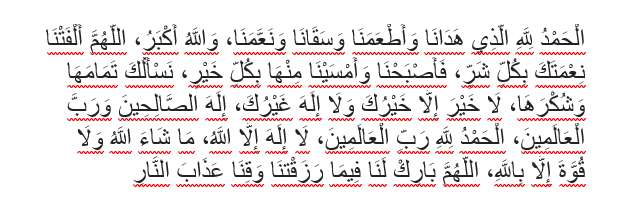 الْحَمْدُ لِلَّهِ الَّذِي هَدَانَا وَأَطْعَمَنَا وَسَقَانَا وَنَعَّمَنَا، وَاللَّهُ أَكْبَرُ، اللَّهُمَّ أَلْفَتْنَا
نِعْمَتَكَ بِكُلِّ شَرٍّ، فَأَصْبَحْنَا وَأَمْسَيْنَا مِنْهَا بِكُلِّ خَيْرٍ، نَسْأَلُكَ تَمَامَهَا
وَشُكْرَهَا، لَا خَيْرَ إِلَّا خَيْرُكَ وَلَا إِلَهَ غَيْرُكَ، إِلَهَ الصَّالِحِينَ وَرَبَّ
الْعَالَمِينَ، الْحَمْدُ لِلَّهِ رَبِّ الْعَالَمِينَ، لَا إِلَهَ إِلَّا اللَّهُ، مَا شَاءَ اللَّهُ وَلَا
قُوَّةَ إِلَّا بِاللَّهِ، اللَّهُمَّ بَارِكْ لَنَا فِيمَا رَزَقْتَنَا وَقِنَا عَذَابَ النَّارِ